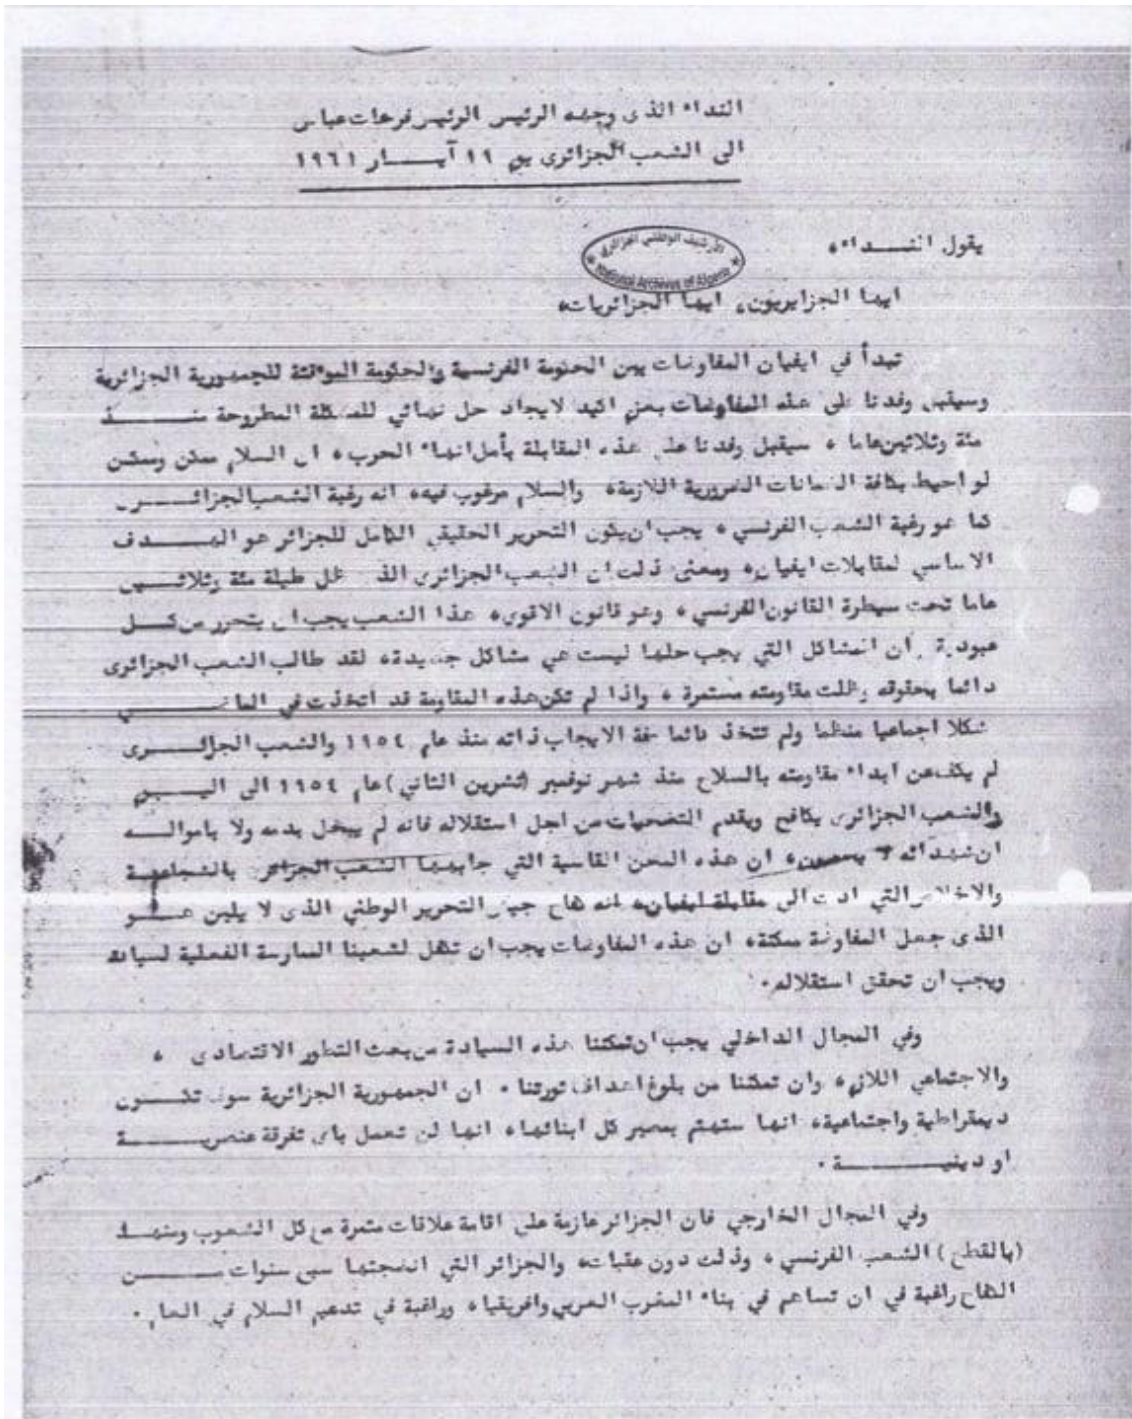 النداء الذى وجهه الرئيس الرئيس فرحات عباس
الى الشعب الجزائرى يوم ١٩ آيـــار ١٩٦١
الأرشيف الوطني الجزائري
National Archives of Algeria
يقول النـــداء،
ايها الجزايريون، ايها الجزائريات،
تبدأ في ايفيان المفاوضات بين الحكومة الفرنسية والحكومة الموقتة للجمهورية الجزائرية
وسيقبل وفدنا على هذه المفاوضات بعزم اكيد لايجاد حل نهائي للمشكلة المطروحة منـــذ
مئة وثلاثين عاما ، سيقبل وفدنا على هذه المقابلة بأمل انهاء الحرب، ان السلام ممكن وممكن
لو احيط بكافة الضمانات الضرورية اللازمة، والسلام مرغوب فيه، انه رغبة الشعب الجزائـــرى
كما هو رغبة الشعب الفرنسي ، يجب ان يكون التحرير الحقيقي الكامل للجزائر هو الهـــدف
الاساسي لمقابلات ايفيان، ومعنى ذلك ان الشعب الجزائرى الذى ظل طيلة مئة وثلاثـــين
عاما تحت سيطرة القانون الفرنسي ، وهو قانون الاقوى، هذا الشعب يجب ان يتحرر من كـــل
عبودية . ان المشاكل التي يجب حلها ليست هي مشاكل جديدة، لقد طالب الشعب الجزائرى
دائما بحقوقه وظلت مقاومته مستمرة ، واذا لم تكن هذه المقاومة قد اتخذت في الماضـــي
شكلا اجماعيا منظما ولم تتخذ دائما صفة الايجاب ذاته منذ عام ١٩٥٤ والشعب الجزائـــرى
لم يكف عن ابداء مقاومته بالسلاح منذ شهر نوفمبر (تشرين الثاني) عام ١٩٥٤ الى اليـــوم
والشعب الجزائرى يكافح ويقدم التضحيات من اجل استقلاله فانه لم يبخل بدمه ولا باموالـــه
ان شهدائه لا يحصون، ان هذه المحن القاسية التي جابهها الشعب الجزائرى بالشجاعـــة
والاخلاص التي ادت الى مقابلة ايفيان، انه كفاح جيش التحرير الوطني الذى لا يلين هـــو
الذى جعل المفاوضة ممكنة، ان هذه المفاوضات يجب ان تكفل لشعبنا الممارسة الفعلية لسيادته
ويجب ان تحقق استقلاله.
وفي المجال الداخلي يجب ان تمكننا هذه السيادة من بعث التطور الاقتصادى ،
والاجتماعي اللازم، وان تمكننا من بلوغ اهداف ثورتنا . ان الجمهورية الجزائرية سوف تكـــون
ديمقراطية واجتماعية، انها ستهتم بمصير كل ابنائها، انها لن تعمل باى تفرقة عنصريـــة
او دينيـــة .
وفي المجال الخارجي فان الجزائر عازمة على اقامة علاقات مثمرة مع كل الشعوب ومنهـــا
(بالقطع) الشعب الفرنسي ، وذلك دون عقبات، والجزائر التي انضجتها سبع سنوات مـــن
الكفاح راغبة في ان تساهم في بناء المغرب العربي وافريقيا، وراغبة في تدعيم السلام في العالم .